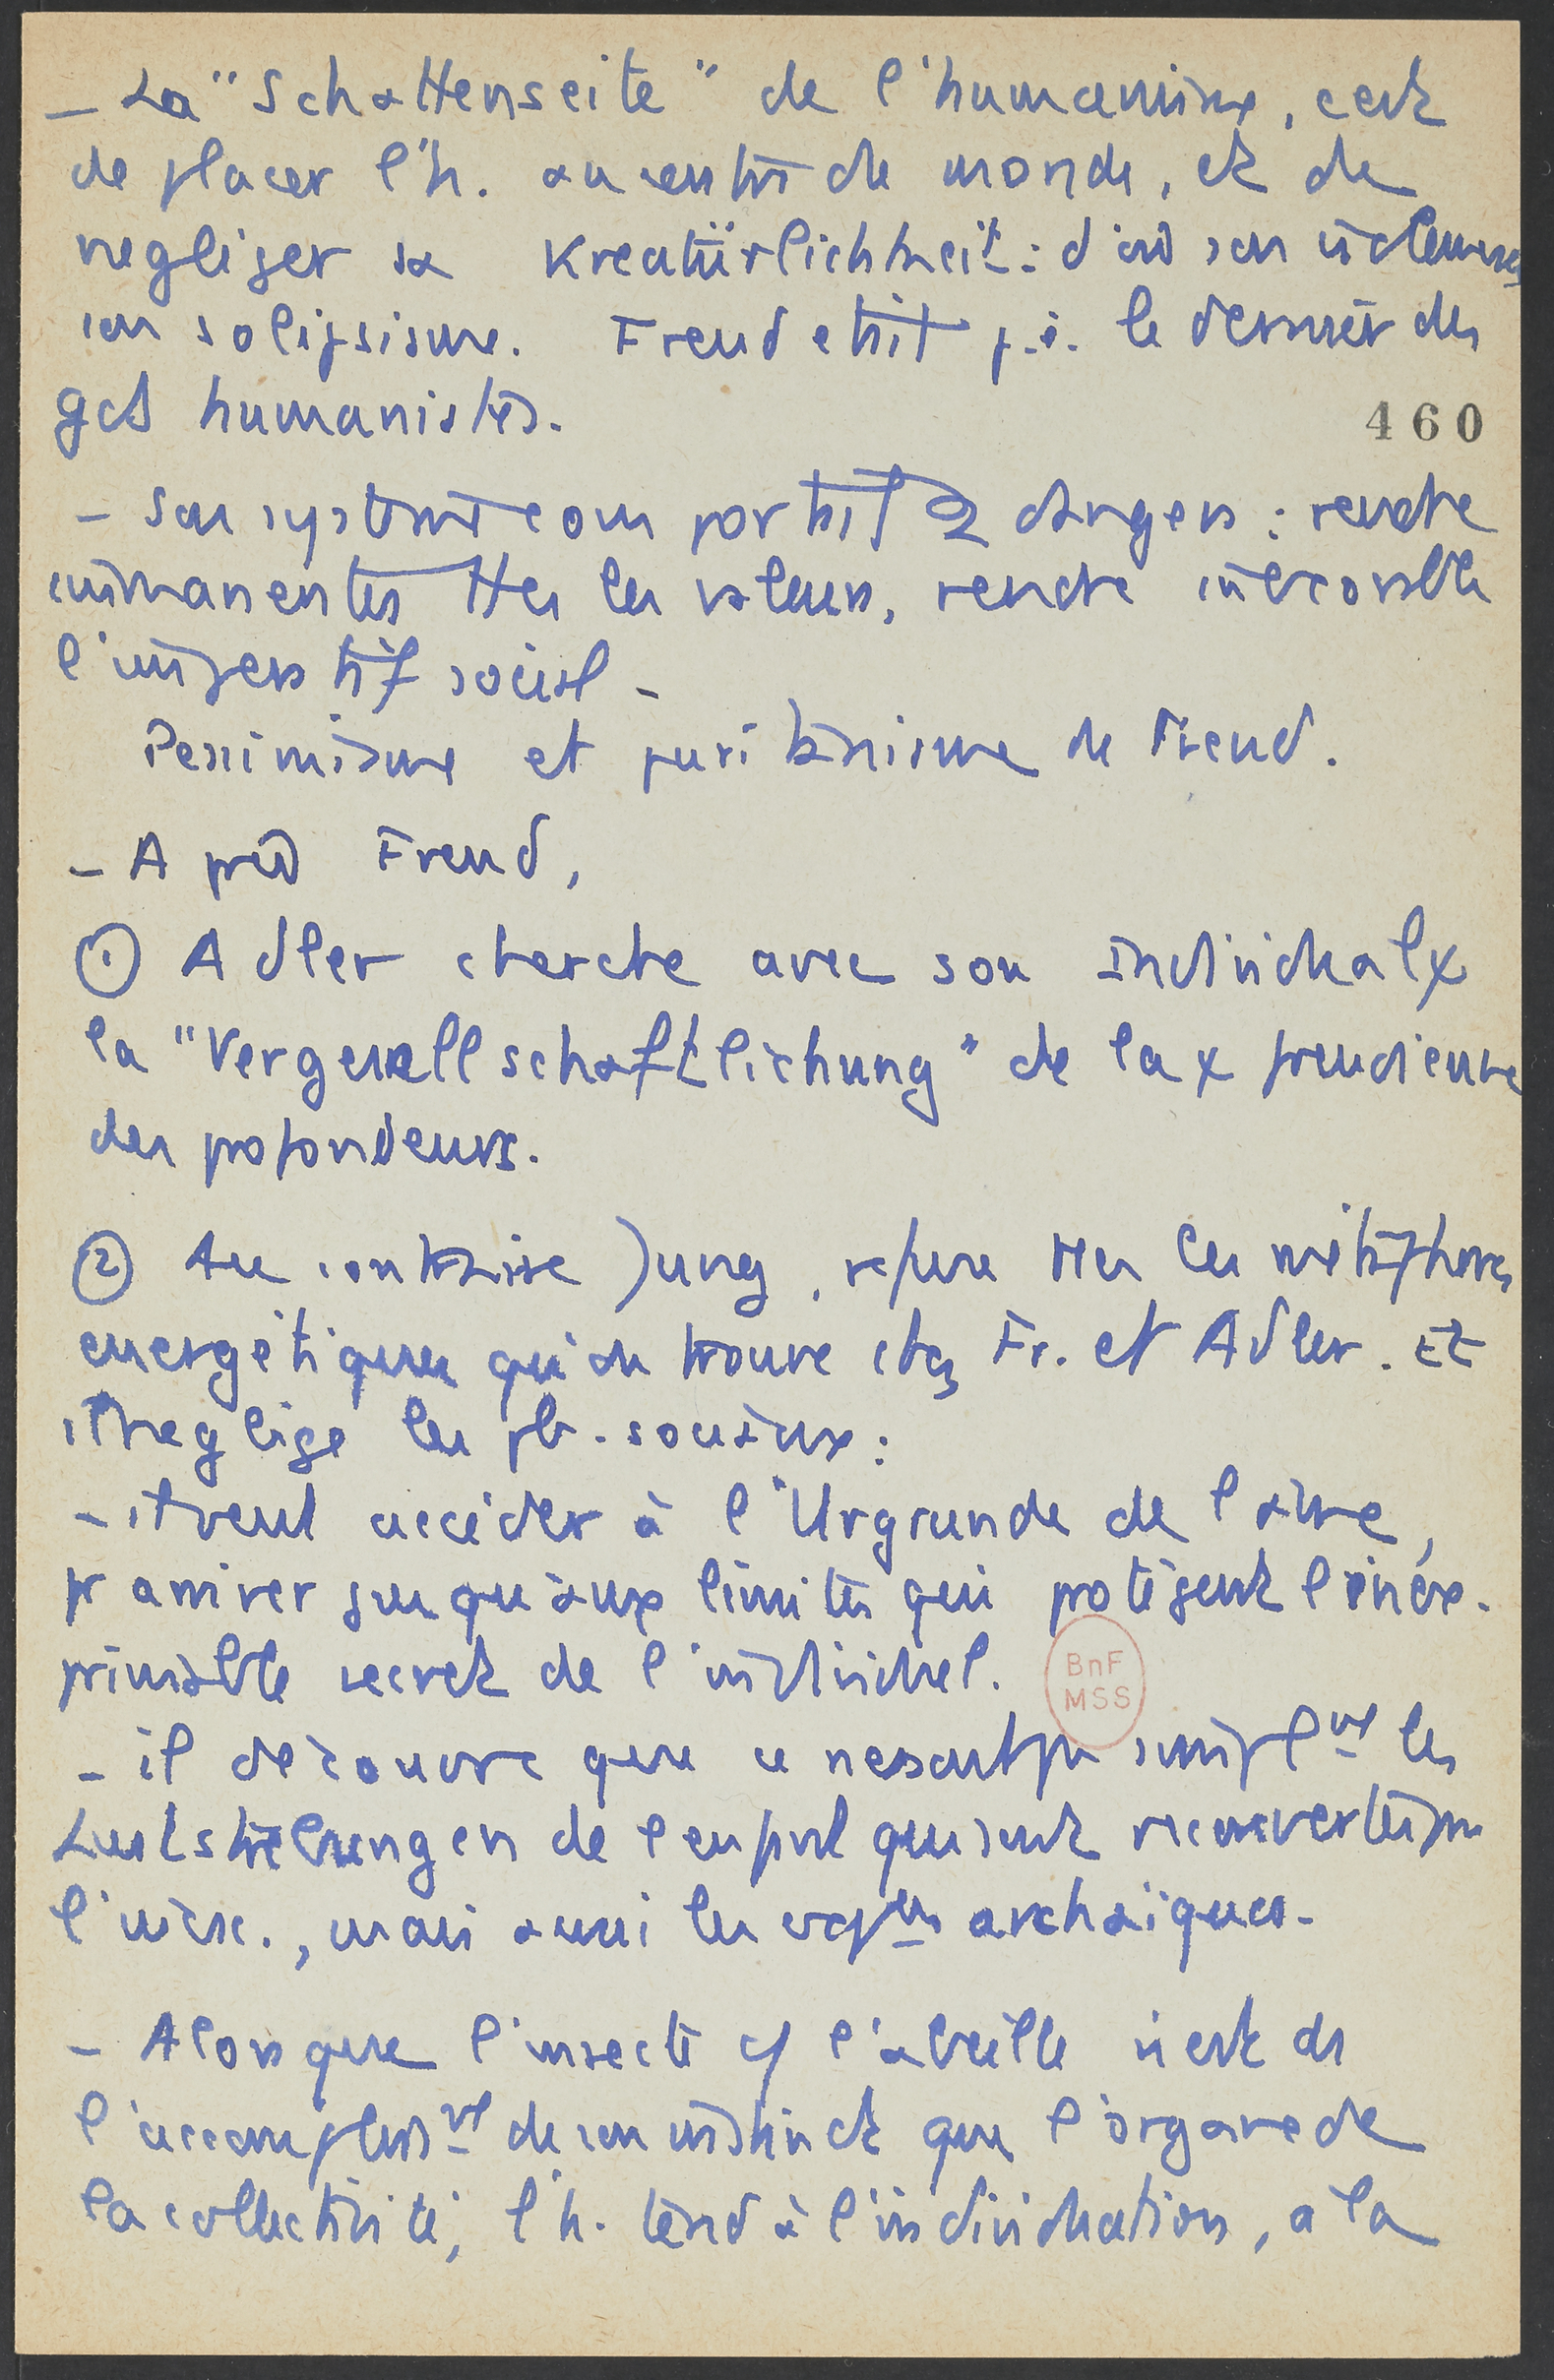 - La "Schattenseite" de l'humanisme, c'est
de placer l'h. au centre du monde, et de
negliger sa Kreatürlichkeit : d'où son
son solipsisme. Freud etait p.ê. le dernier des
gds humanistes.
460
- Son système comportait 2 dangers : rendre
immanentes ttes les valeurs, rendre inexorable
l'imperatif social -
Pessimisme et puritanisme de Freud.
- Après Freud,
① Adler cherche avec son Individualψ
la "Vergesellschaftlichung" de la ψ freudienne
des profondeurs.
② Au contraire Jung, refuse ttes les métaphores
energétiques qu'on trouve chez Fr. et Adler. Et
il neglige les pb. sociaux :
- il veut accéder à l'Urgrunde de l'ame,
pr arriver jusqu'aux limites qui protègent l'inex-
primable secret de l'individuel.
BnF
MSS
- il découvre que ce ne sont pas simplt les
Luststrebungen de l'enfant qui sont recouvertes par
l'incsc., mais aussi les archaïques.
- Alors que l'insecte cf l'abeille n'est ds
l'accomplisst de son instinct que l'organe de
la collectivité, l'h. tend à l'individuation, a la